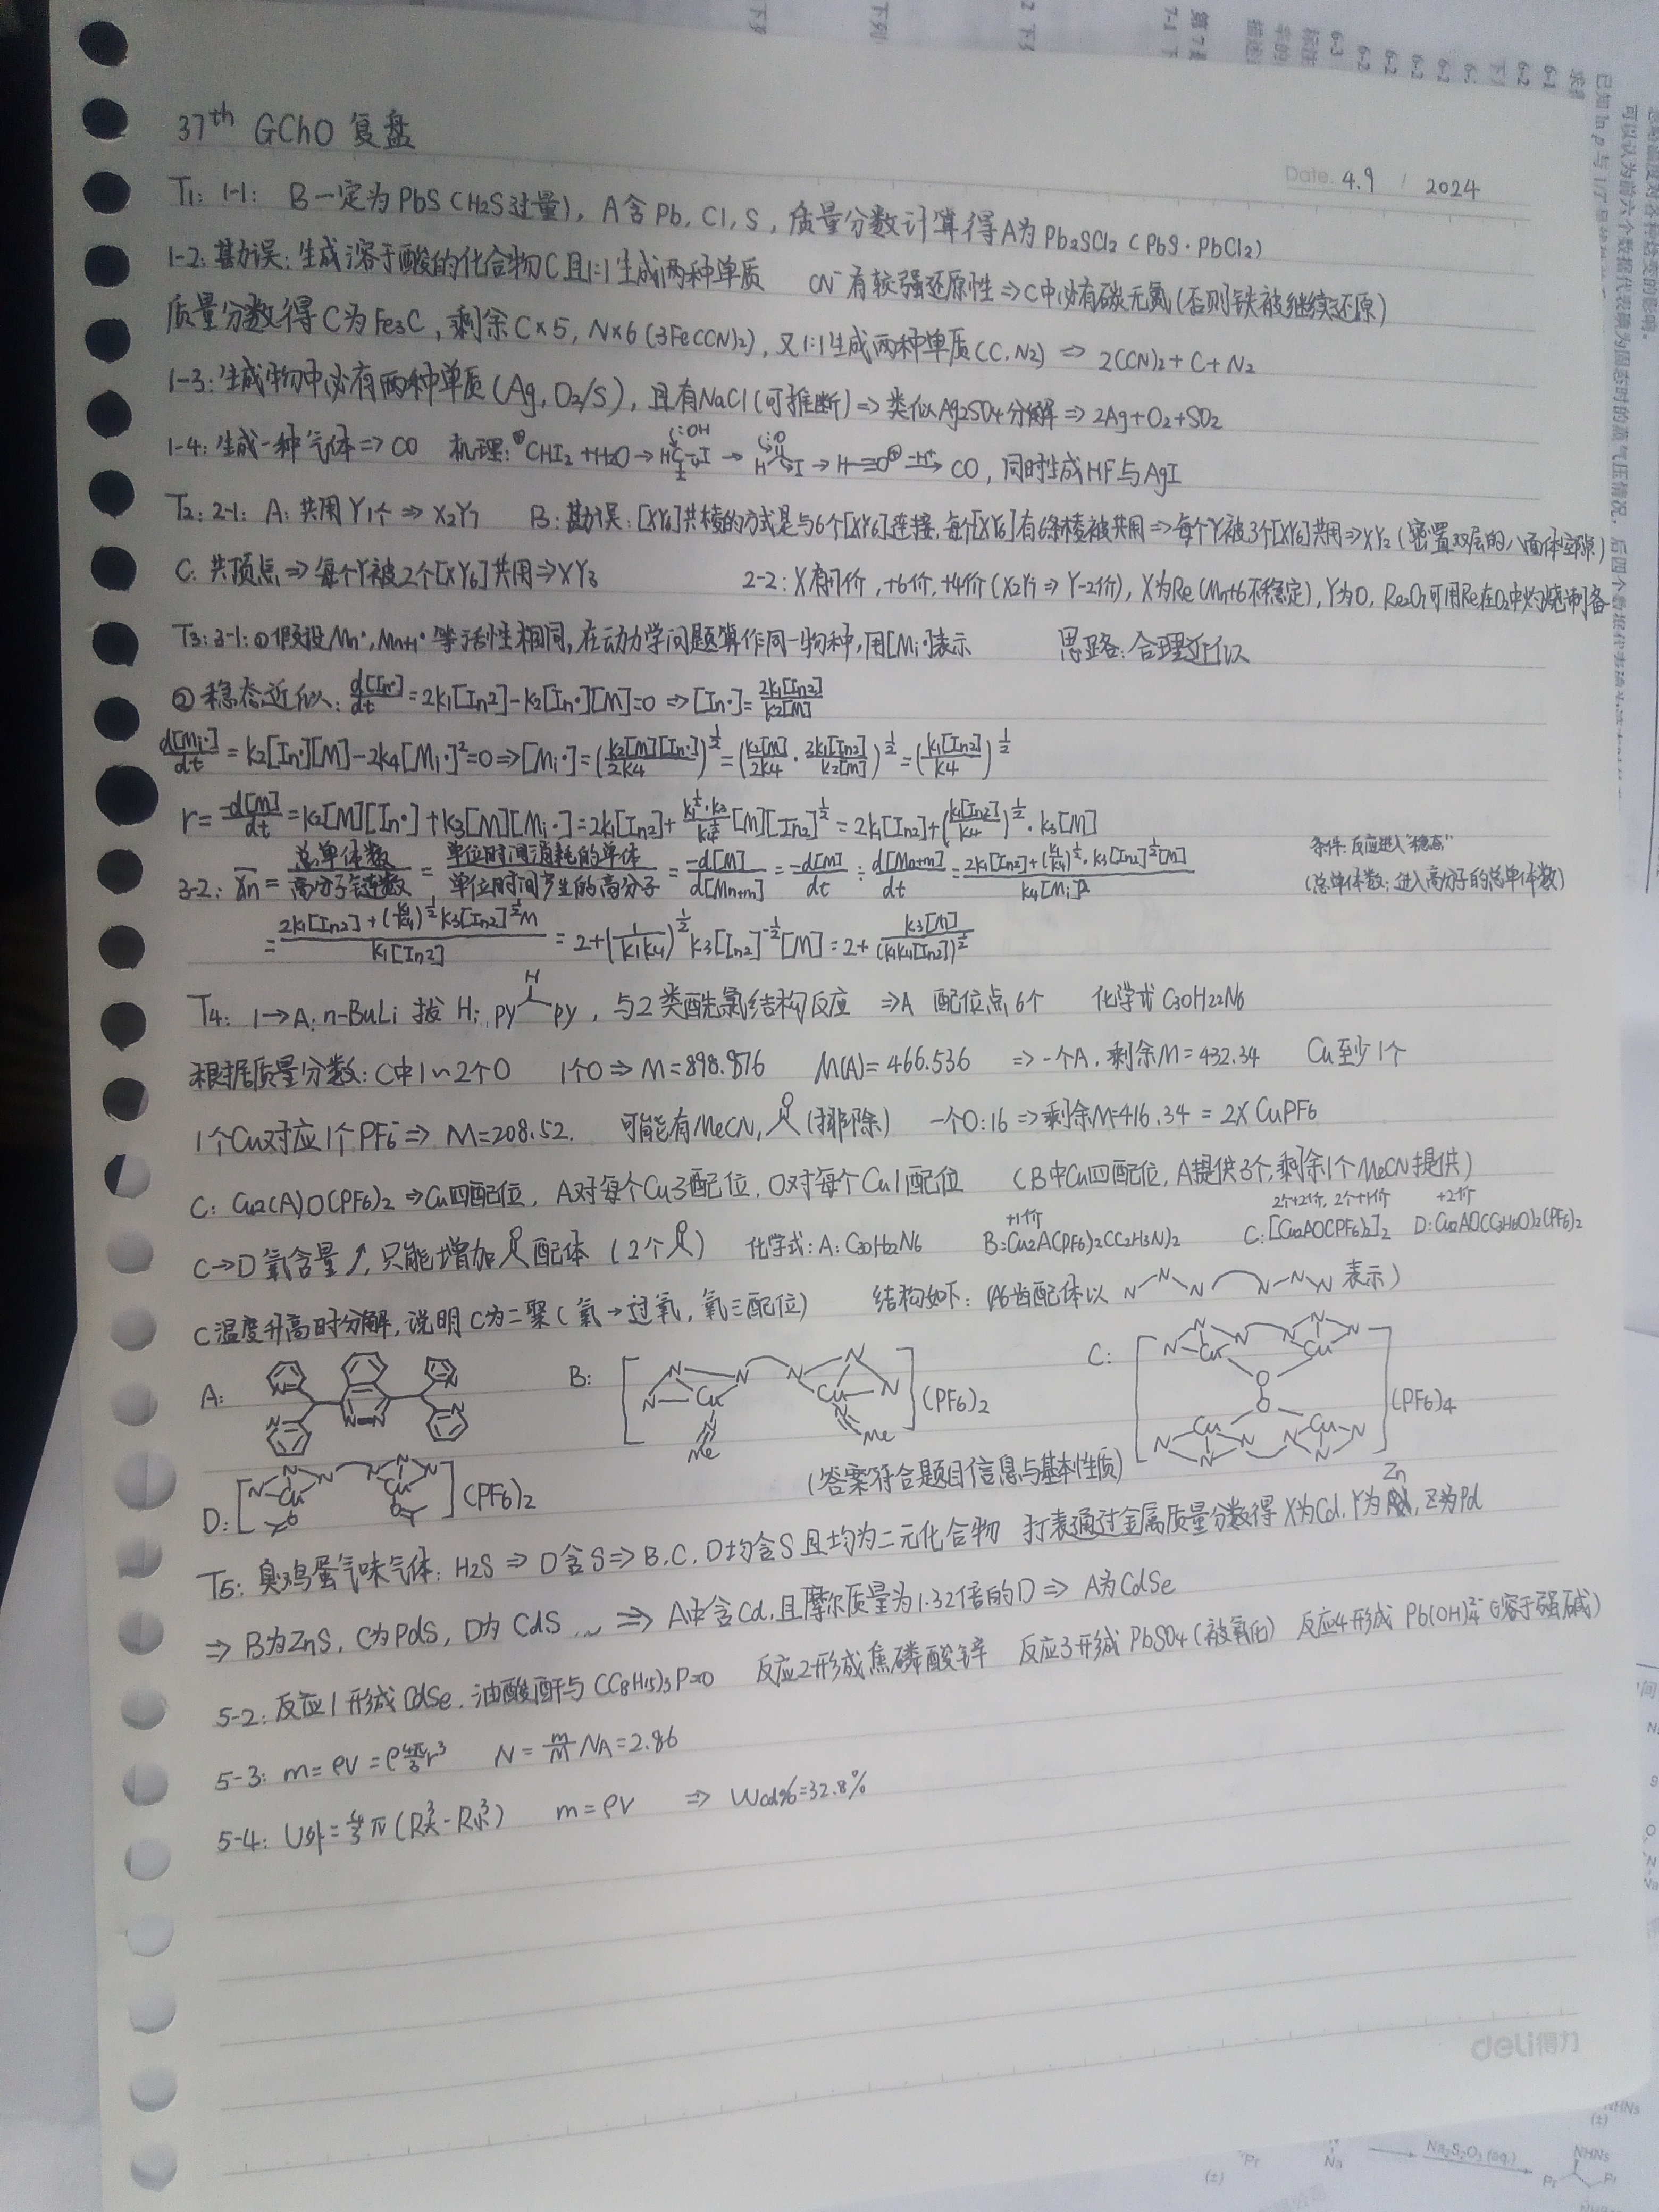 37th GChO 复盘
Date. 4.9 / 2024
T1: 1-1: B一定为PbS(H2S过量), A含Pb, Cl, S, 质量分数计算得A为Pb2SCl2 (PbS·PbCl2)
1-2: 勘误: 生成溶于酸的化合物C且1:1生成两种单质 CN⁻有较强还原性⇒C中必有碳无氮(否则铁被继续还原)
质量分数得C为Fe3C, 剩余C×5, N×6 (3Fe(CN)2), 又1:1生成两种单质(C, N2) ⇒ 2(CN)2+C+N2
1-3: 生成物中必有两种单质(Ag, O2/S), 且有NaCl(可推断)⇒类似Ag2SO4分解⇒2Ag+O2+SO2
1-4: 生成一种气体⇒CO 机理: ⊕CHI2+H2O→ → →H-≡O⊕ -H⁺→ CO, 同时生成HF与AgI
T2: 2-1: A: 共用Y1个⇒X2Y7 B: 勘误: [XY6]共棱的方式是与6个[XY6]连接, 每个[XY6]有6条棱被共用⇒每个Y被3个[XY6]共用⇒XY2 (密置双层的八面体空隙)
C: 共顶点⇒每个Y被2个[XY6]共用⇒XY3 2-2: X有+7价, +6价, +4价(X2Y7⇒Y-2价), X为Re(Mn+6不稳定), Y为O, Re2O7可用Re在O2中灼烧制备
T3: 3-1: ①假设Mn·, Mn+1·等活性相同, 在动力学问题算作同一物种, 用[Mi·]表示 思路: 合理近似
②稳态近似: d[In·]/dt = 2k1[In2]-k2[In·][M]=0 ⇒[In·]=2k1[In2]/k2[M]
d[Mi·]/dt = k2[In·][M]-2k4[Mi·]²=0⇒[Mi·]=(k2[M][In·]/2k4)^½=(k2[M]/2k4 · 2k1[In2]/k2[M])^½=(k1[In2]/k4)^½
r=-d[M]/dt=k2[M][In·]+k3[M][Mi·]=2k1[In2]+k1^½·k3/k4^½[M][In2]^½=2k1[In2]+(k1[In2]/k4)^½·k3[M]
条件: 反应进入"稳态"
3-2: Xn=总单体数/高分子链数=单位时间消耗的单体/单位时间产生的高分子=-d[M]/d[Mn+m]=-d[M]/dt÷d[Mn+m]/dt=2k1[In2]+(k1/k4)^½·k3[In2]^½[M]/k4[Mi·]²
(总单体数: 进入高分子的总单体数)
=2k1[In2]+(k1/k4)^½k3[In2]^½M/k1[In2]=2+(1/k1k4)^½k3[In2]^-½[M]=2+k3[M]/(k1k4[In2])^½
T4: 1→A: n-BuLi 拔H: py H py, 与2类酰氯结构反应 ⇒A 配位点6个 化学式C30H22N6
根据质量分数: C中1~2个O 1个O⇒M=898.876 M(A)=466.536 ⇒一个A, 剩余M=432.34 Cu至少1个
1个Cu对应1个PF6⁻⇒M=208.52. 可能有MeCN, O (排除) 一个O:16⇒剩余M=416.34=2×CuPF6
C: Cu2(A)O(PF6)2⇒Cu四配位, A对每个Cu3配位, O对每个Cu1配位 (B中Cu四配位, A提供3个, 剩余1个MeCN提供)
+1价 2个+2价, 2个+1价 +2价
C→D氧含量↗, 只能增加 O 配体 (2个 O ) 化学式: A: C30H22N6 B: Cu2A(PF6)2(C2H3N)2 C: [Cu2AO(PF6)2]2 D: Cu2AO(C3H6O)2(PF6)2
C温度升高时分解, 说明C为二聚(氧→过氧, 氧三配位) 结构如下: (A6齿配体以 N N N N N N 表示)
A: N N N-N N N
B: [ N N N Cu N Me N N N Cu N Me ](PF6)2
C: [ N N N Cu N N N Cu O O Cu N N N Cu N N N ](PF6)4
D: [ N N N Cu O N N N Cu O ](PF6)2 (答案符合题目信息与基本性质)
T5: 臭鸡蛋气味气体: H2S⇒D含S⇒B, C, D均含S且均为二元化合物 打表通过金属质量分数得X为Cd, Y为Zn, Z为Pd
⇒B为ZnS, C为PdS, D为CdS ⇒A中含Cd, 且摩尔质量为1.32倍的D⇒A为CdSe
5-2: 反应1形成CdSe, 油酸酐与(C8H15)3P=O 反应2形成焦磷酸锌 反应3形成PbSO4(被氧化) 反应4形成Pb(OH)4²⁻(溶于强碱)
5-3: m=ρV=ρ4π/3r³ N=m/M NA=2.86
5-4: V外=4/3π(R大³-R小³) m=ρV ⇒ Wcd%=32.8%
deli得力